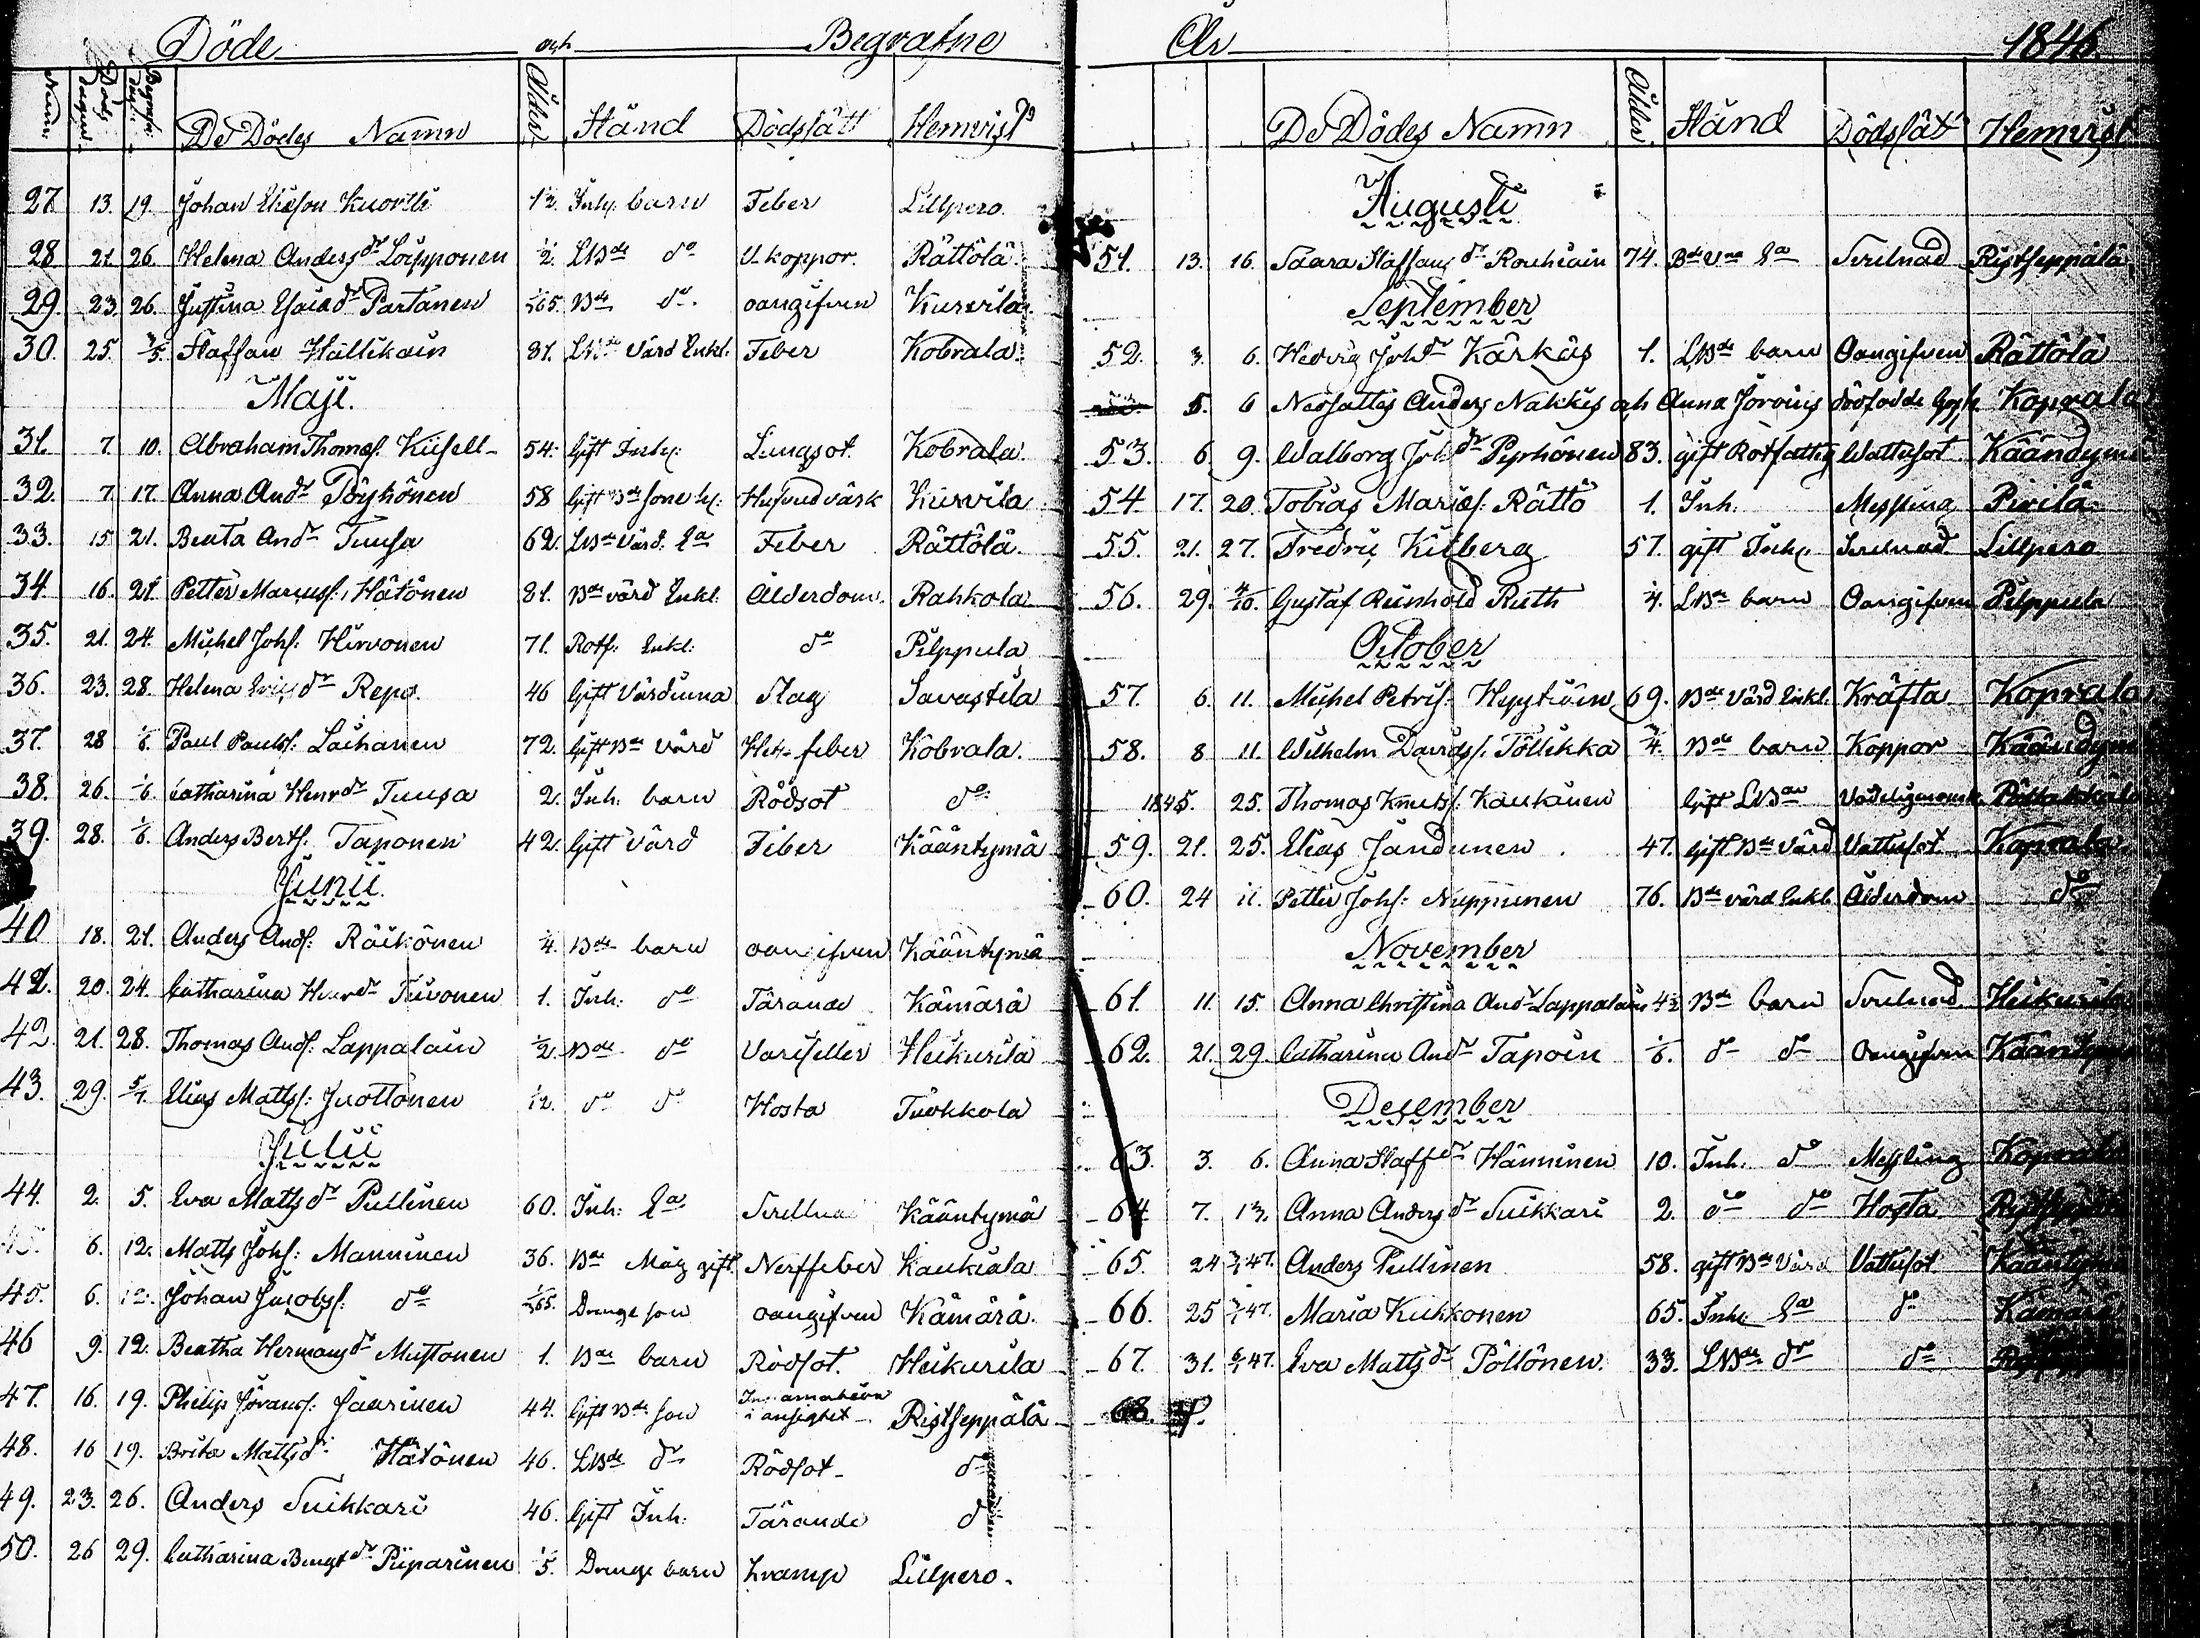 Döde och Begrafne
Num: Döds dagen Begrafn: dag: De Dödes Namn Ålder Stånd Dödssätt Hemvist
27 13. 19. Johan Eliasson 1/2. Inh: barn Feber Lillpero.
28 21. 26. Helena Anders dr Löpponen 1/2. LBde do V. koppor. Rättölä.
29. 23 26. Justina Esaiæ dr Partanen 1/365. Bde do. oangifven Kurvila.
30. 25. 3/5. Staffan Hällikain 81. LBde Värd Enkl. Feber Kobrala.
Maji.
31. 7. 10. Abraham Thomas. Kiisell 54. Gift Inh: Lungsot. Kobrala.
32. 7. 17. Anna And dr Pöyhönen 58 Gift Bde Hufvudvärk Kurvila
33. 15. 21. Beata And dr Tuusa 62. LBde Värd: Ea Feber Rättölä.
34. 16. 21. Petter Marcuss: Hätönen 81. Bde värd Enkl. Ålderdom. Rahkola
35. 21. 24. Michel Johs: Hirvonen 71. Rotf: Enkl: do Pilppula
36. 23. 28. Helena Erics dr Repo. 46 Gift Värdinna Slag Savastila
37. 28 1/6. Paul Paulss: Laihanen 72. Gift Bde Värd Het-feber Kobrala.
38. 26. 1/6. Catharina Henr dr Tuusa 2. Inh: barn Rödsot do
39. 28. 1/6. Anders Berts. Taponen 42. Gift Värd Feber Kääntymä
Junii.
40 18. 21. Anders Ands: Räikönen 1/4. Bde barn oangifven Kääntymä
41. 20. 24. Catharina Henr dr Tuvonen 1. Inh: do Tärande Kämärä
42. 21. 28. Thomas Ands: Lappalain 1/2. Bde do Heikurila
43. 29. 5/7. Elias Matss: Juottonen 1/2. do do Hosta Tuokkola
Julii
44. 2. 5. Eva Mats dr Pullinen 60. Inh: Ea Svullnad Kääntymä
6. 12. Mats Johs: Manninen 36. Bde Måg gift. Nerffeber Kaukiala
45. 6. 12. Johan Jacobss: do 1/365. Drenge son oangifven Kämärä.
46 9. 12. Beatha Hermans dr Mustonen 1. Bde barn Rödsot. Heikurila
47. 16. 19. Philip Görans: Jaarinen 44. Gift Bde son i ansigtet Ristseppälä
48. 16 19. Brita Mats dr Hätönen 46. LBde do Rödsot do
49. 23. 26. Anders Suikkari 46. Gift Inh: Tärande do
50. 26 29. Catharina Bengt dr Piiparinen 1/5. Drenge barn kramp Lillpero.
År 1846
De Dödes Namn Ålder Stånd Dödssätt Hemvist
Augusti
51. 13. 16. Saara Staffans dr Rouhiain 74. Ea Svulnad Ristseppälä
September
52. 3. 6. Hedvig Joh dr Kärkäs 1. LBde barn Oangifven Rättölä
5. 6 Anders Nakkis och Anna dödfödde Koprala
53. 6 9. Walborg Joh dr Pyrhönen 83. gift Rotfattig Wattusot Kääntymä
54 17. 20. Tobias Mariæs: Rättö 1. Inh. Messling Pirilä
55. 21. 27. Fredric Kilberg 57. gift Inh: Svulnad Lillpero
56. 29. 4/10. Gustaf Reinhold Ruth 1/4. LBde barn Oangifven Pilppula
October
57. 6. 11. Michel Petris: 69. Bde Värd Enkl. Kräfta Koprala
58. 8 11. Wilhelm Davidss: Töllikka 3/4. Bde barn Koppor Kääntymä
1845. 25. Thomas Knuts: Kaukanen Gift LBde
59. 21. 25. Elias Jandunen 47. Gift Bde Värd Vattusot Koprala
60. 24 11. Petter Johs: Nuppunen 76. Bde värd Enkl Ålderdom do
November
61. 11. 15. Anna Christina And dr Lappalain 4 1/2 Bde barn Svulnad Heikurila
62. 21. 29. Catharina And dr Tapoin 1/6. do do Oangifven Kääntymä
December
63. 3. 6. Anna Staff dr Hänninen 10. Inh. do Messling Koprala
64 7. 13. Anna Anders dr Suikkari 2. do do Hosta
65. 24 3/1 47. Anders Pullinen 58. gift Bde Värd Vattusot Kääntymä
66. 25 3/1 47. Maria Kukkonen 65. Inh: Ea do Kämärä
67. 31. 6/1 47. Eva Mats dr Pöllönen. 33. LBde dr do
68.